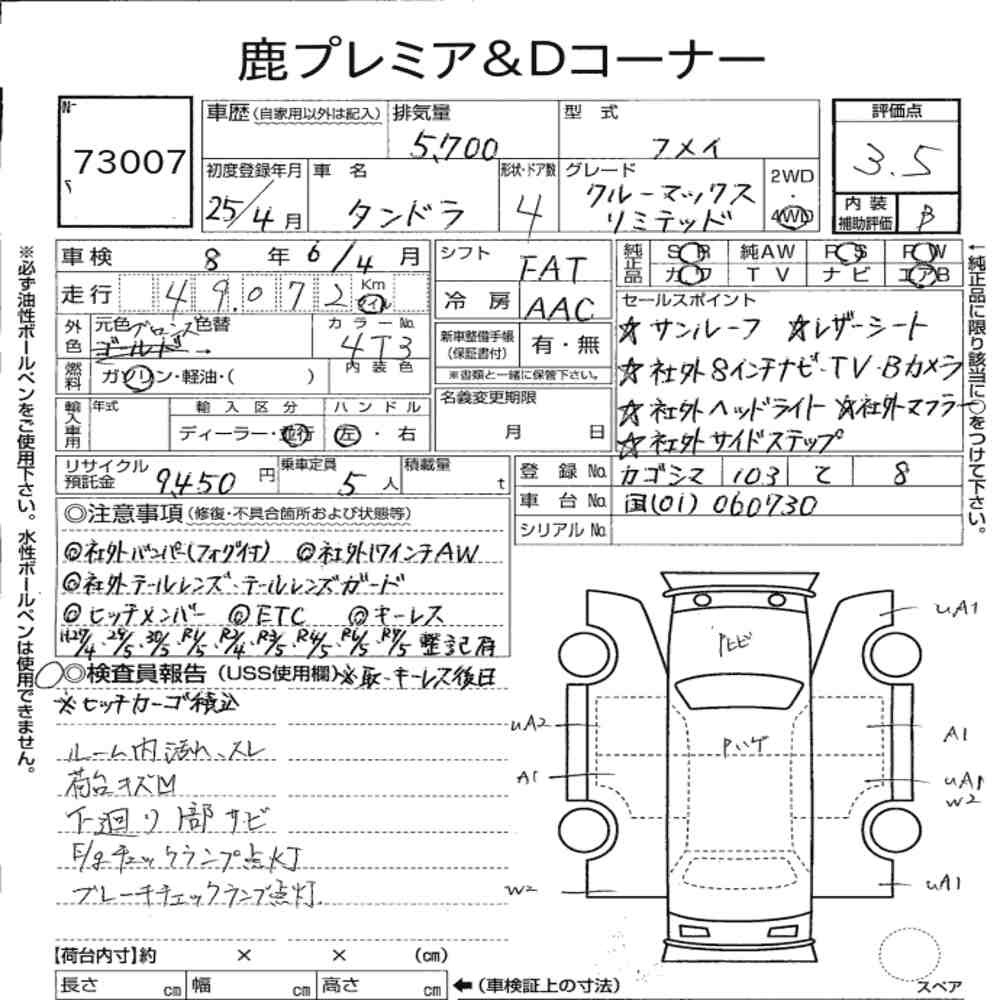 鹿プレミア&Dコーナー
73007
車歴(自家用以外は記入) 排気量 5,700 型式 フメイ
評価点 3.5
初度登録年月 25/4月 車名 タンドラ 形状・ドア数 4 グレード クルーマックス リミテッド 2WD 4WD
内装補助評価 B
車検 8年6/4月 シフト FAT 純正品 SR 純AW PS PW
カワ TV ナビ エアB
走行 49,072 Km マイル 冷房 AAC
セールスポイント
☆サンルーフ ☆レザーシート
☆社外8インチナビ・TV・Bカメラ
☆社外ヘッドライト ☆社外マフラー
☆社外サイドステップ
外色 元色 ブロンズ 色替 ゴールド→ カラーNo. 4T3 内装色
新車整備手帳(保証書付) 有・無
※書類と一緒に保管下さい。
燃料 ガソリン・軽油・( )
名義変更期限 月 日
輸入車用 年式 輸入区分 ディーラー・並行 ハンドル 左・右
リサイクル預託金 9,450円 乗車定員 5人 積載量 t
登録No. カゴシマ 103 て 8
車台No. 国(01)060730
シリアルNo.
◎注意事項(修復・不具合箇所および状態等)
◎社外バンパー(フォグ付) ◎社外17インチAW
◎社外テールレンズ・テールレンズガード
◎ヒッチメンバー ◎ETC ◎キーレス
H27/4・29/5・30/5・R1/5・R2/4・R3/5・R4/5・R6/5・R7/5 整記有
◎検査員報告(USS使用欄)※取・キーレス後日
※ヒッチカーゴ積込
ルーム内汚れ、スレ
荷台キズ凹
下廻り1部サビ
E/gチェックランプ点灯
ブレーキチェックランプ点灯.
【荷台内寸】約 × × (cm)
長さ cm 幅 cm 高さ cm ←(車検証上の寸法)
※必ず油性ボールペンをご使用下さい。水性ボールペンは使用できません。
←純正品に限り該当に○をつけて下さい。
uA1
uA2
A1
A1
uA1
W2
W2
uA1
スペア